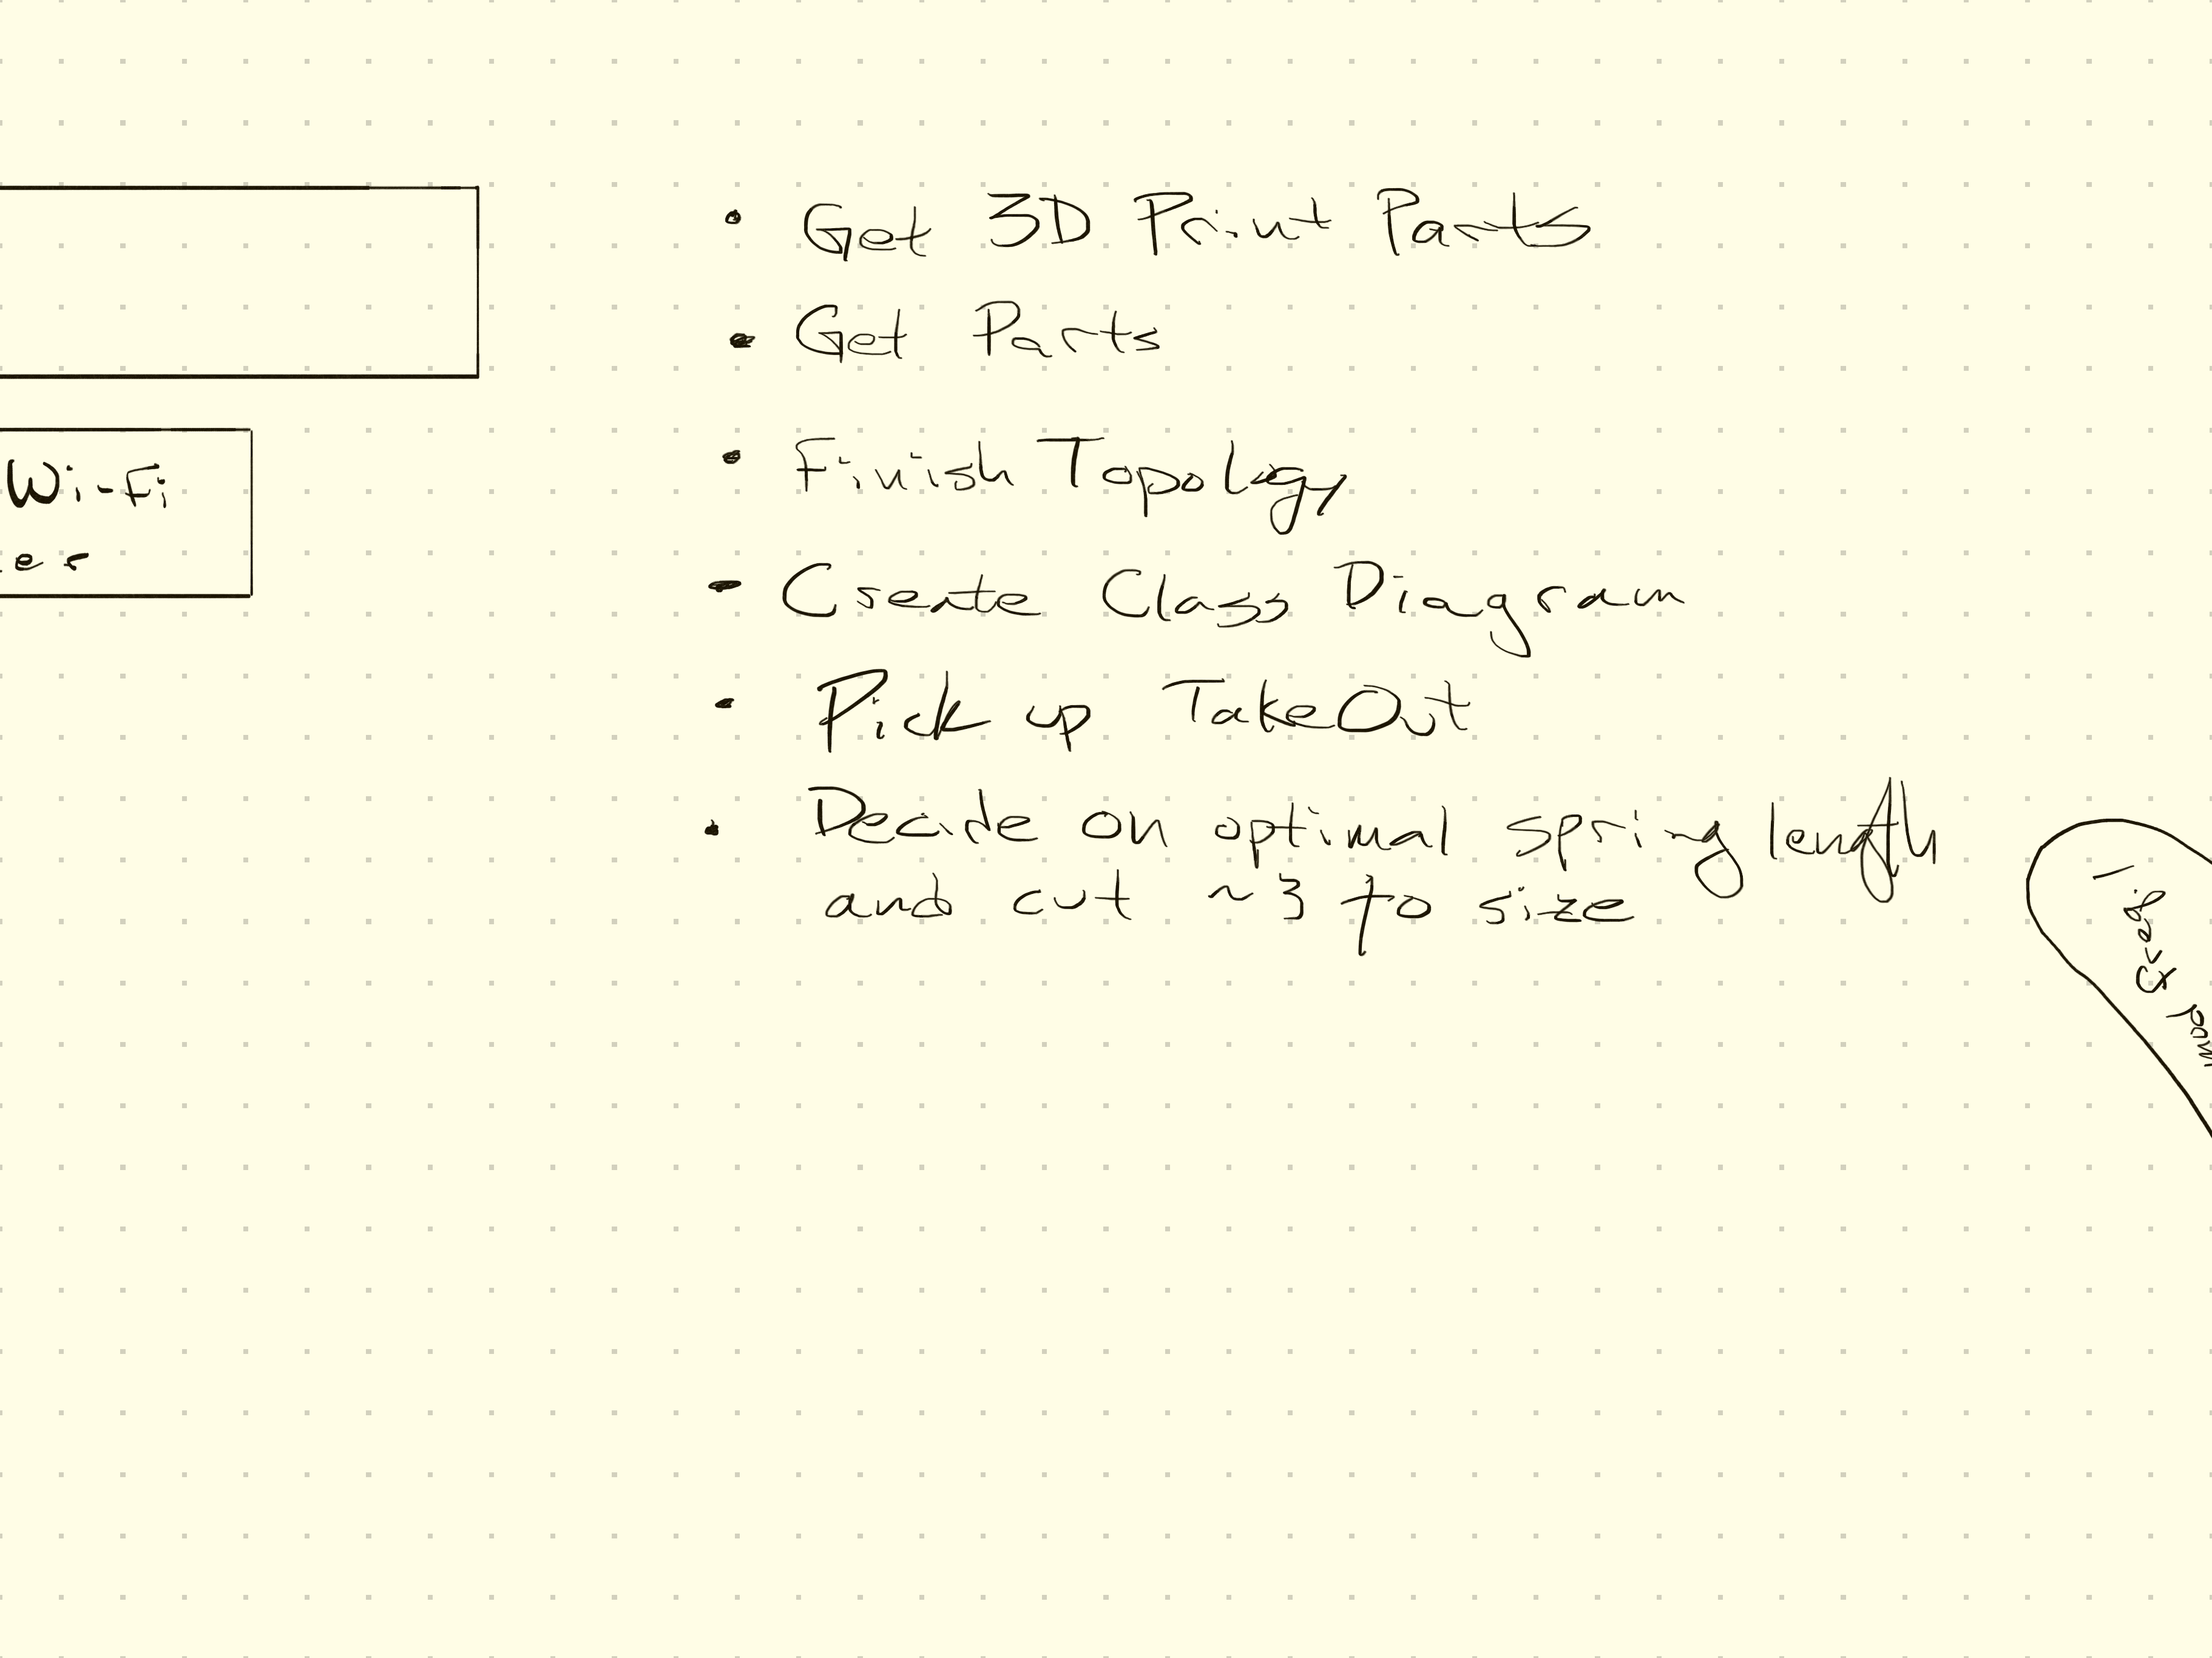 • Get 3D Print Parts
• Get Parts
Wi-Fi
• Finish Topology
• Create Class Diagram
• Pick up TakeOut
• Decide on optimal spring length
and cut ~3 to size